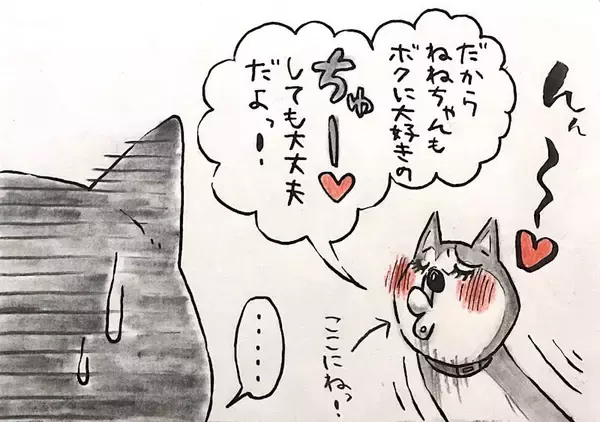 だから
ねねちゃんも
ボクに大好きの
ちゅー
しても大丈夫
だよっ!
んん〜
ここにねっ!
・・・・・